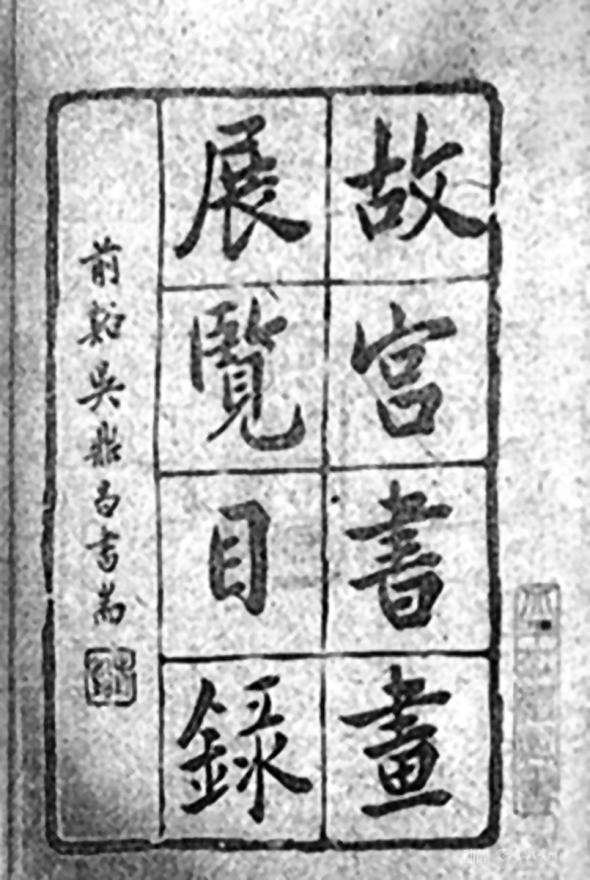 故宮書畫
展覽目錄
吳鼎昌書耑